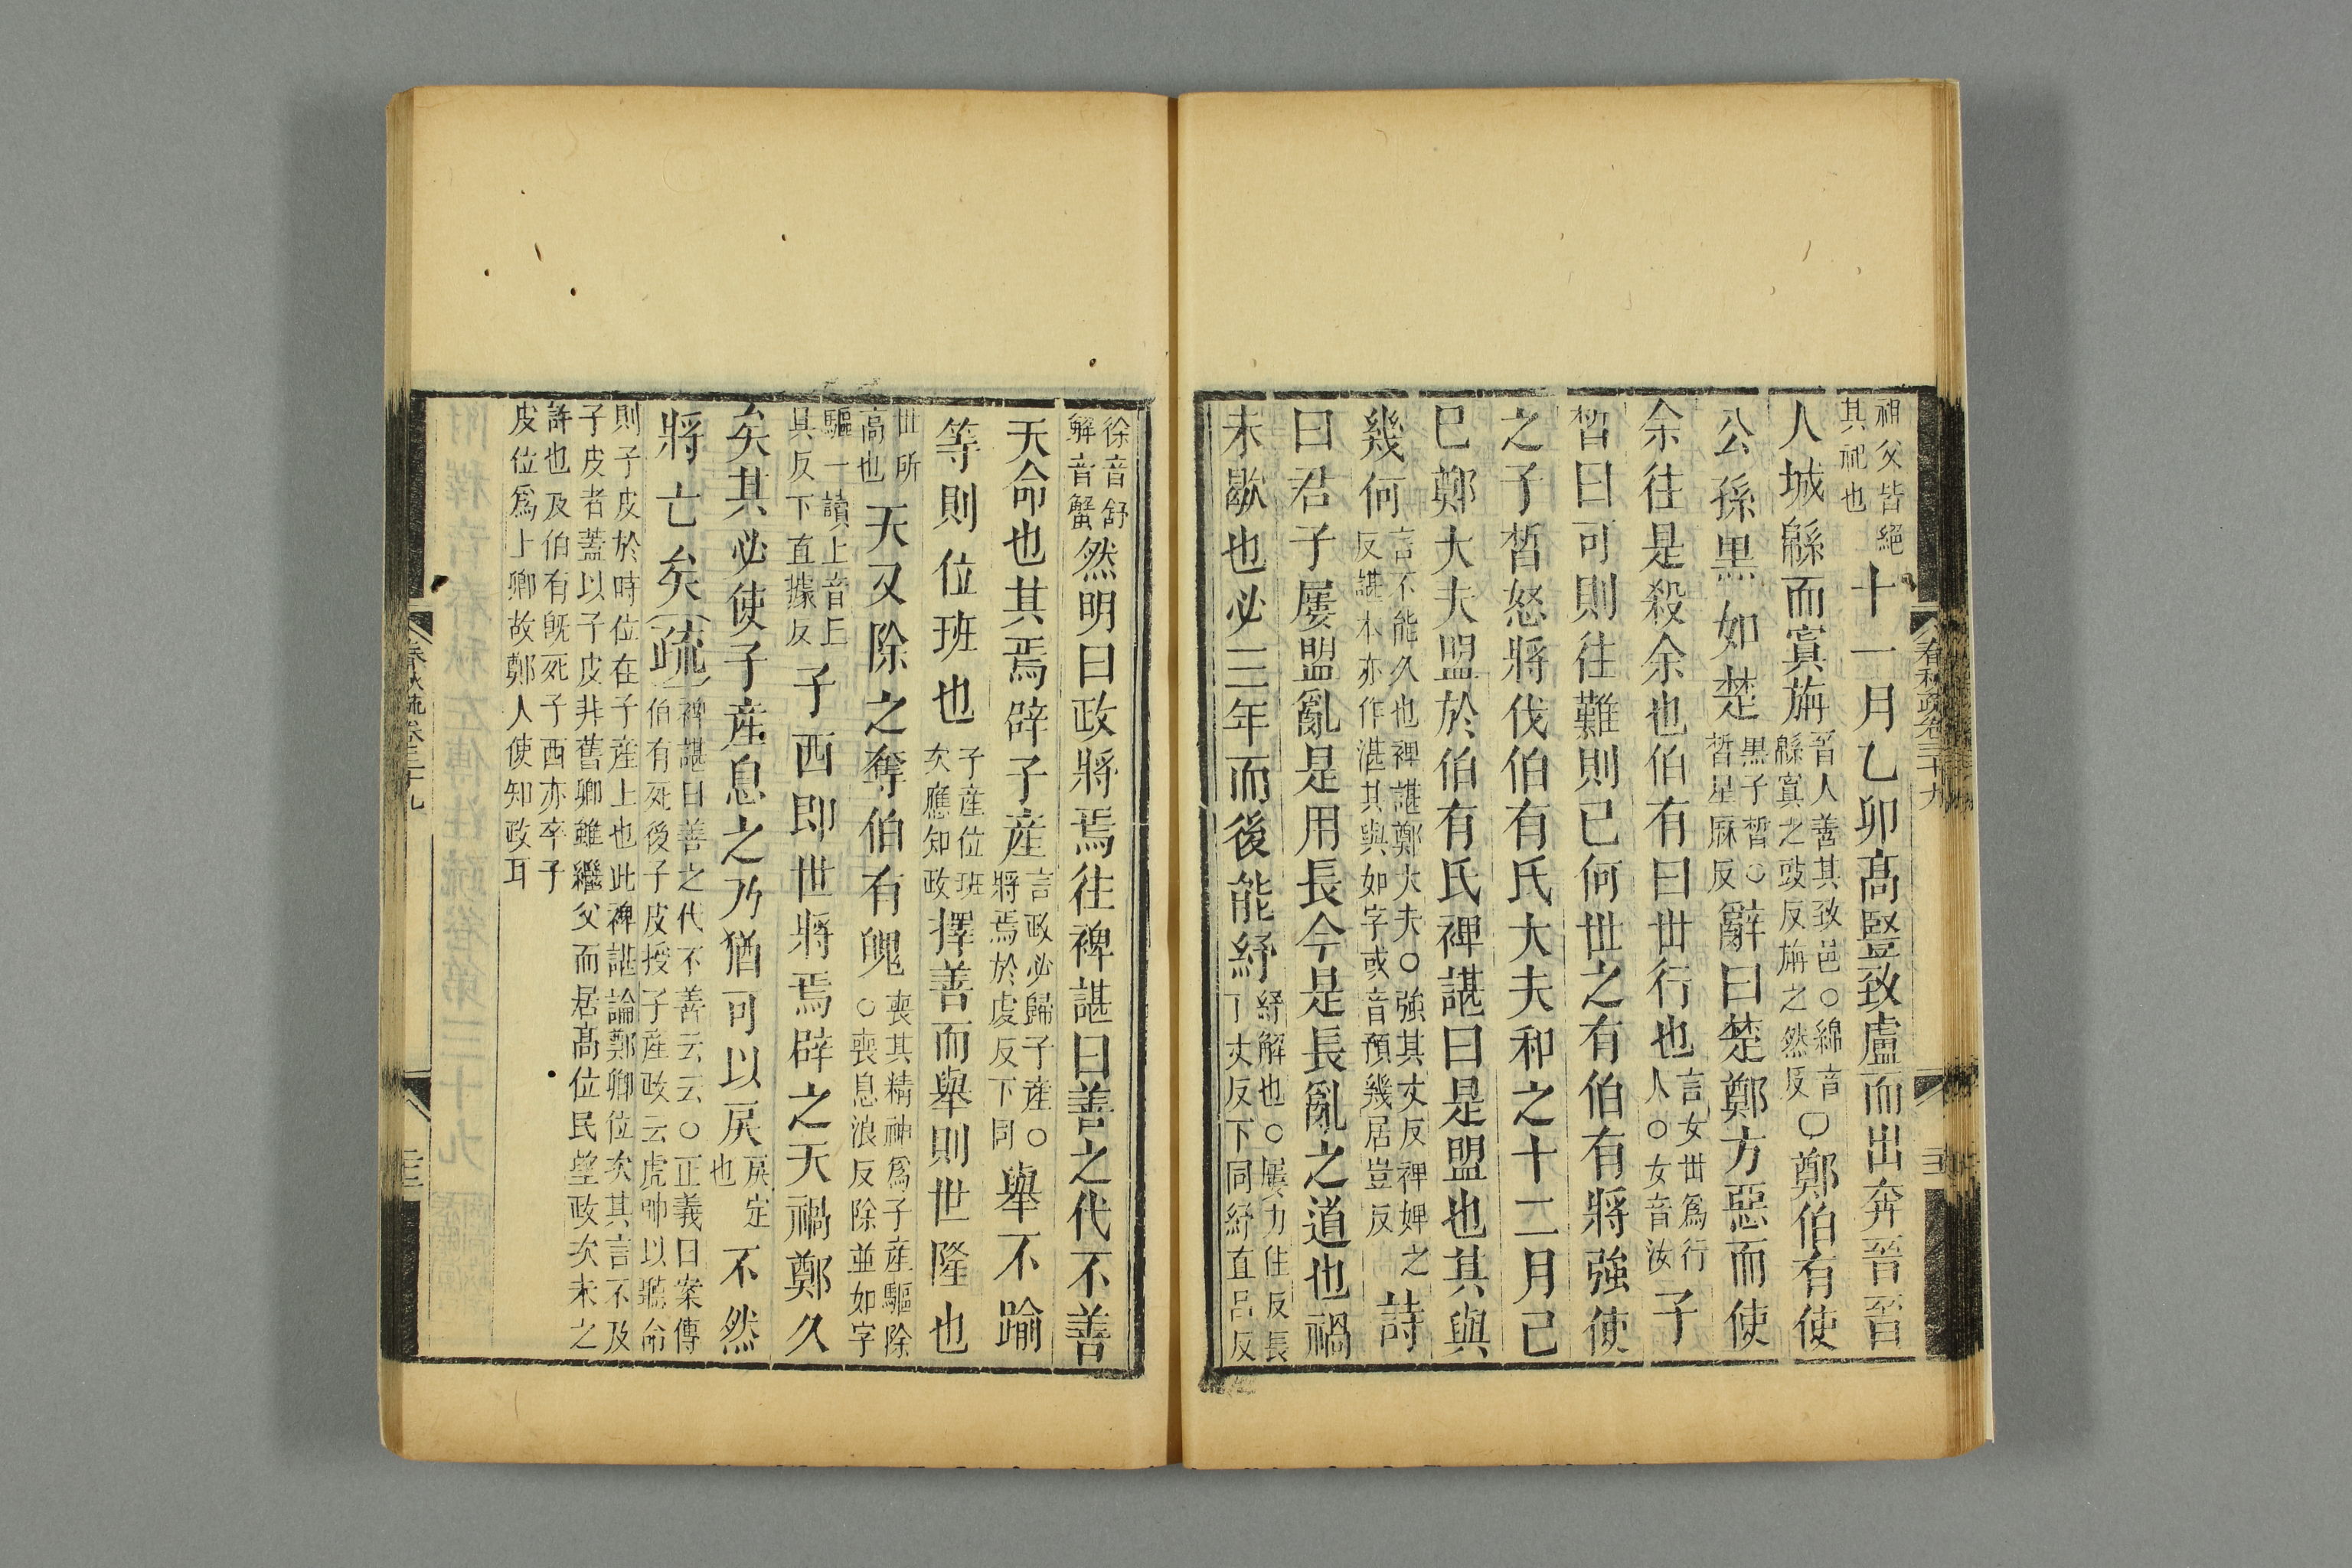 祖父皆絕
其祀也
十一月乙卯高豎致盧而出奔晉晉
人城緜而寘旃
晉人善其致邑○綿音
緜寘之豉反旃之然反
○鄭伯有使
公孫黑如楚
黑子晳○
晳星厤反
辭曰楚鄭方惡而使
余往是殺余也伯有曰世行也
言女世爲行
人○女音汝
子
晳曰可則往難則已何世之有伯有將強使
之子晳怒將伐伯有氏大夫和之十二月己
巳鄭大夫盟於伯有氏裨諶曰是盟也其與
幾何
言不能久也裨諶鄭大夫○強其丈反裨婢之
反諶本亦作湛其與如字或音預幾居豈反
詩
曰君子屢盟亂是用長今是長亂之道也禍
未歇也必三年而後能紓
紓解也○屢力住反長
丁丈反下同紓直呂反
春秋疏卷三十九
徐音舒
解音蟹
然明曰政將焉往裨諶曰善之代不善
天命也其焉辟子產
言政必歸子產○
將焉於虔反下同
舉不踰
等則位班也
子產位班
次應知政
擇善而舉則世隆也
世所
高也
天又除之奪伯有魄
喪其精神爲子產驅除
○喪息浪反除並如字
驅一讀上音丘
具反下直據反
子西即世將焉辟之天禍鄭久
矣其必使子產息之乃猶可以戾
戾定
也
不然
將亡矣
疏
裨諶曰善之代不善云云○正義曰案傳
伯有死後子皮授子產政云虎帥以聽命
則子皮於時位在子產上也此裨諶論鄭卿位次其言不及
子皮者蓋以子皮井舊卿雖繼父而居高位民望政次未之
許也及伯有既死子西亦卒子
皮位爲上卿故鄭人使知政耳
春秋疏卷三十九